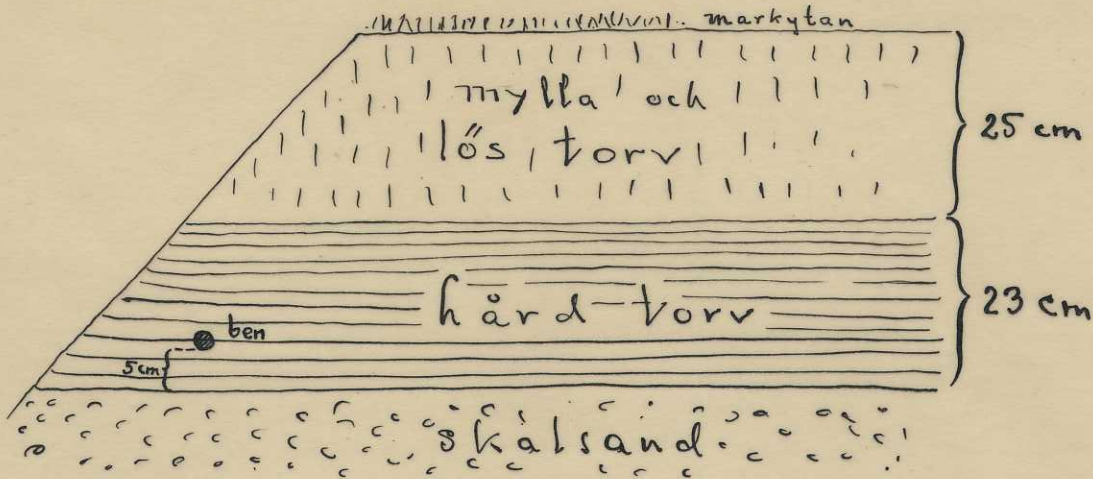 markytan
mylla och
lös torv
25 cm
hård torv
23 cm
ben
5 cm
skålsand